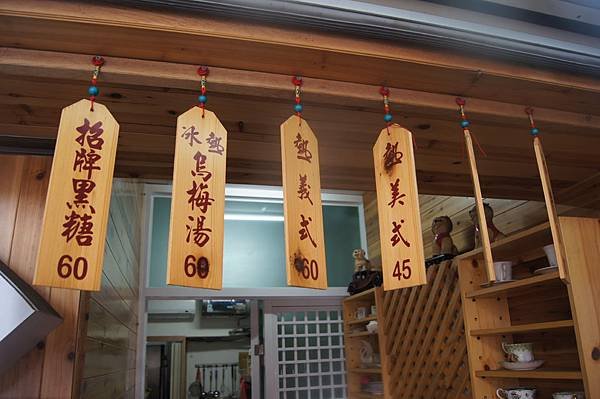 招牌黑糖
60
冰 熱
烏梅湯
60
熱
義式
60
熱
美式
45